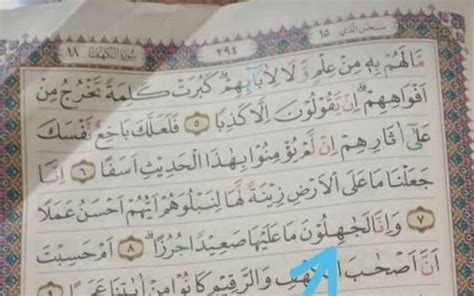 سبحن الذي ١٥ ٢٩٤ سورة الكهف ١٨
مَا لَهُمْ بِهٖ مِنْ عِلْمٍ وَّلَا لِاٰبَاۤىِٕهِمْۗ كَبُرَتْ كَلِمَةً تَخْرُجُ مِنْ
اَفْوَاهِهِمْۗ اِنْ يَّقُوْلُوْنَ اِلَّا كَذِبًا ٥ فَلَعَلَّكَ بَاخِعٌ نَّفْسَكَ
عَلٰٓى اٰثَارِهِمْ اِنْ لَّمْ يُؤْمِنُوْا بِهٰذَا الْحَدِيْثِ اَسَفًا ٦ اِنَّا
جَعَلْنَا مَا عَلَى الْاَرْضِ زِيْنَةً لَّهَا لِنَبْلُوَهُمْ اَيُّهُمْ اَحْسَنُ عَمَلًا
٧ وَاِنَّا لَجٰهِلُوْنَ مَا عَلَيْهَا صَعِيْدًا جُرُزًاۗ ٨ اَمْ حَسِبْتَ
اَنَّ اَصْحٰبَ الْكَهْفِ وَالرَّقِيْمِ كَانُوْا مِنْ اٰيٰتِنَا عَجَبًا ٩